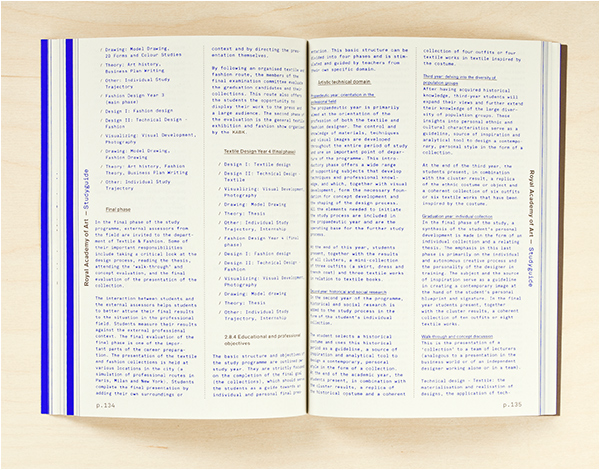 / Drawing: Model Drawing,
2D Forms and Colour Studies
/ Theory: Art history,
Business Plan Writing
/ Other: Individual Study
Trajectory
/ Fashion Design Year 3
(main phase)
/ Design I: Fashion design
/ Design II: Technical Design -
Fashion
/ Visualizing: Visual Development,
Photography
/ Drawing: Model Drawing,
Fashion Drawing
/ Theory: Art history, Fashion
Theory, Business Plan Writing
/ Other: Individual Study
Trajectory
Final phase
In the final phase of the study
programme, external assessors from
the field are invited to the depart-
ment of Textile & Fashion. Some of
their important responsibilities
include taking a critical look at the
design process, reading the thesis,
attending the 'walk-through' and
concept evaluation, and the final
evaluation of the presentation of the
collection.
The interaction between students and
the external assessors helps students
to better attune their final results
to the situation in the professional
field. Students measure their results
against the external professional
context. The final evaluation of the
final phase is one of the impor-
tant parts of the career prepara-
tion. The presentation of the textile
and fashion collections is held at
various locations in the city (a
simulation of professional routes in
Paris, Milan and New York). Students
complete the final presentation by
adding their own surroundings or
context and by directing the pres-
entation themselves.
By following an organized textile and
fashion route, the members of the
final examination committee evaluate
the graduation candidates and their
collections. This route also offers
the students the opportunity to
display their work to the press and
a large audience. The second phase of
the evaluation is the general textile
exhibition and fashion show organized
by the KABK.
Textile Design Year 4 (final phase)
/ Design I: Textile design
/ Design II: Technical Design -
Textile
/ Visualizing: Visual Development,
Photography
/ Drawing: Model Drawing
/ Theory: Thesis
/ Other: Individual Study
Trajectory, Internship
/ Fashion Design Year 4 (final
phase)
/ Design I: Fashion design
/ Design II: Technical Design -
Fashion
/ Visualizing: Visual Development,
Photography
/ Drawing: Model Drawing
/ Theory: Thesis
/ Other: Individual Study
Trajectory, Internship
2.8.4 Educational and professional
objectives
The basic structure and objectives of
the study programme are outlined per
study year. They are strictly focused
on the completion of the final goal
(the collections), which should serve
the students as a guide towards an
individual and personal final presen-
Royal Academy of Art — Studyguide
p.134
entation. This basic structure can be
divided into four phases and is stim-
ulated and guided by teachers from
their own specific domain.
Artistic technical domain
Propaedeutic year: orientation in the
professional field
The propaedeutic year is primarily
aimed at the orientation of the
profession of both the textile and
fashion designer. The control and
range of materials, techniques
and visual images are developed
throughout the entire period of study
and are an important point of depar-
ture of the programme. This intro-
ductory phase offers a wide range
of supporting subjects that develop
techniques and professional knowl-
edge, and which, together with visual
development, form the necessary foun-
dation for concept development and
the shaping of the design process.
All the elements needed to initiate
the study process are included in
the propaedeutic year and are the
operating base for the further study
process.
At the end of this year, students
present, together with the results
of all clusters, a mini collection
of three outfits (a skirt, dress and
and three textile works
in relation to textile books.
Second year: historical and social research
In the second year of the programme,
historical and social research is
added to the study process in the
form of the student's individual
collection.
The student selects a historical
costume and uses this historical
period as a guideline, a source of
inspiration and analytical tool to
design a contemporary, personal
style in the form of a collection.
At the end of the academic year, the
students present, in combination with
the cluster results, a replica of
the historical costume and a coherent
collection of four outfits or four
textile works in textile inspired by
the costume.
Third year: delving into the diversity of
population groups
After having acquired historical
knowledge, third-year students will
expand their views and further extend
their knowledge of the large diver-
sity of population groups. These
insights into personal ethnic and
cultural characteristics serve as a
guideline, source of inspiration and
analytical tool to design a contem-
porary, personal style in the form of
a collection.
At the end of the third year, the
students present, in combination
with the cluster result, a replica
of the ethnic costume or object and
a coherent collection of six outfits
or six textile works that have been
inspired by the costume.
Graduation year: individual collection
In the final phase of the study, a
synthesis of the student's personal
development is made in the form of an
individual collection and a relating
thesis. The emphasis in this last
phase is primarily on the individual
and autonomous creative process and
the personality of the designer in
training. The subject and the source
of inspiration serve as a guideline
in creating a contemporary image at
the hand of the student's personal
blueprint and signature. In the final
year students present, together
with the cluster results, a coherent
collection of ten outfits or eight
textile works.
Walk-through and concept discussion
This is the presentation of a
'collection' to a team of lecturers
(analogous to a presentation in the
business world or of an independent
designer working alone or in a team).
Technical design - Textile: the
materialisation and realisation of
designs, the application of tech-
Royal Academy of Art — Studyguide
p.135